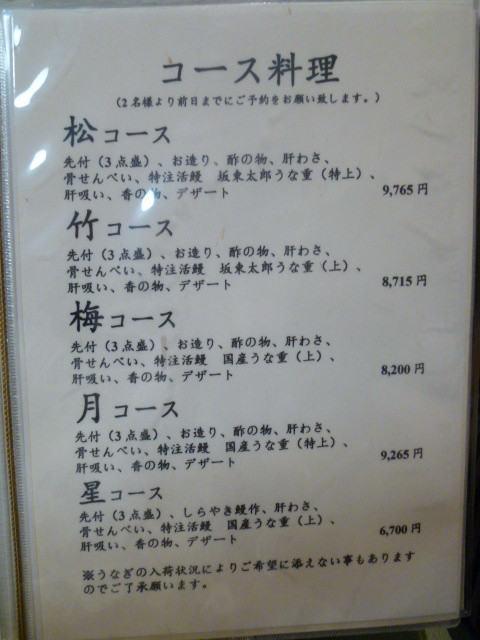 コース料理
(2名様より前日までにご予約をお願い致します。)
松コース
先付(3点盛)、お造り、酢の物、肝わさ、
骨せんべい、特注活鰻 坂東太郎うな重(特上)、
肝吸い、香の物、デザート 9,765円
竹コース
先付(3点盛)、お造り、酢の物、肝わさ、
骨せんべい、特注活鰻 坂東太郎うな重(上)、
肝吸い、香の物、デザート 8,715円
梅コース
先付(3点盛)、お造り、酢の物、肝わさ、
骨せんべい、特注活鰻 国産うな重(上)、
肝吸い、香の物、デザート 8,200円
月コース
先付(3点盛)、お造り、酢の物、肝わさ、
骨せんべい、特注活鰻 国産うな重(特上)、
肝吸い、香の物、デザート 9,265円
星コース
先付(3点盛)、しらやき鰻作、肝わさ、
骨せんべい、特注活鰻 国産うな重(上)、
肝吸い、香の物、デザート 6,700円
※うなぎの入荷状況によりご希望に添えない事もあります
のでご了承願います。